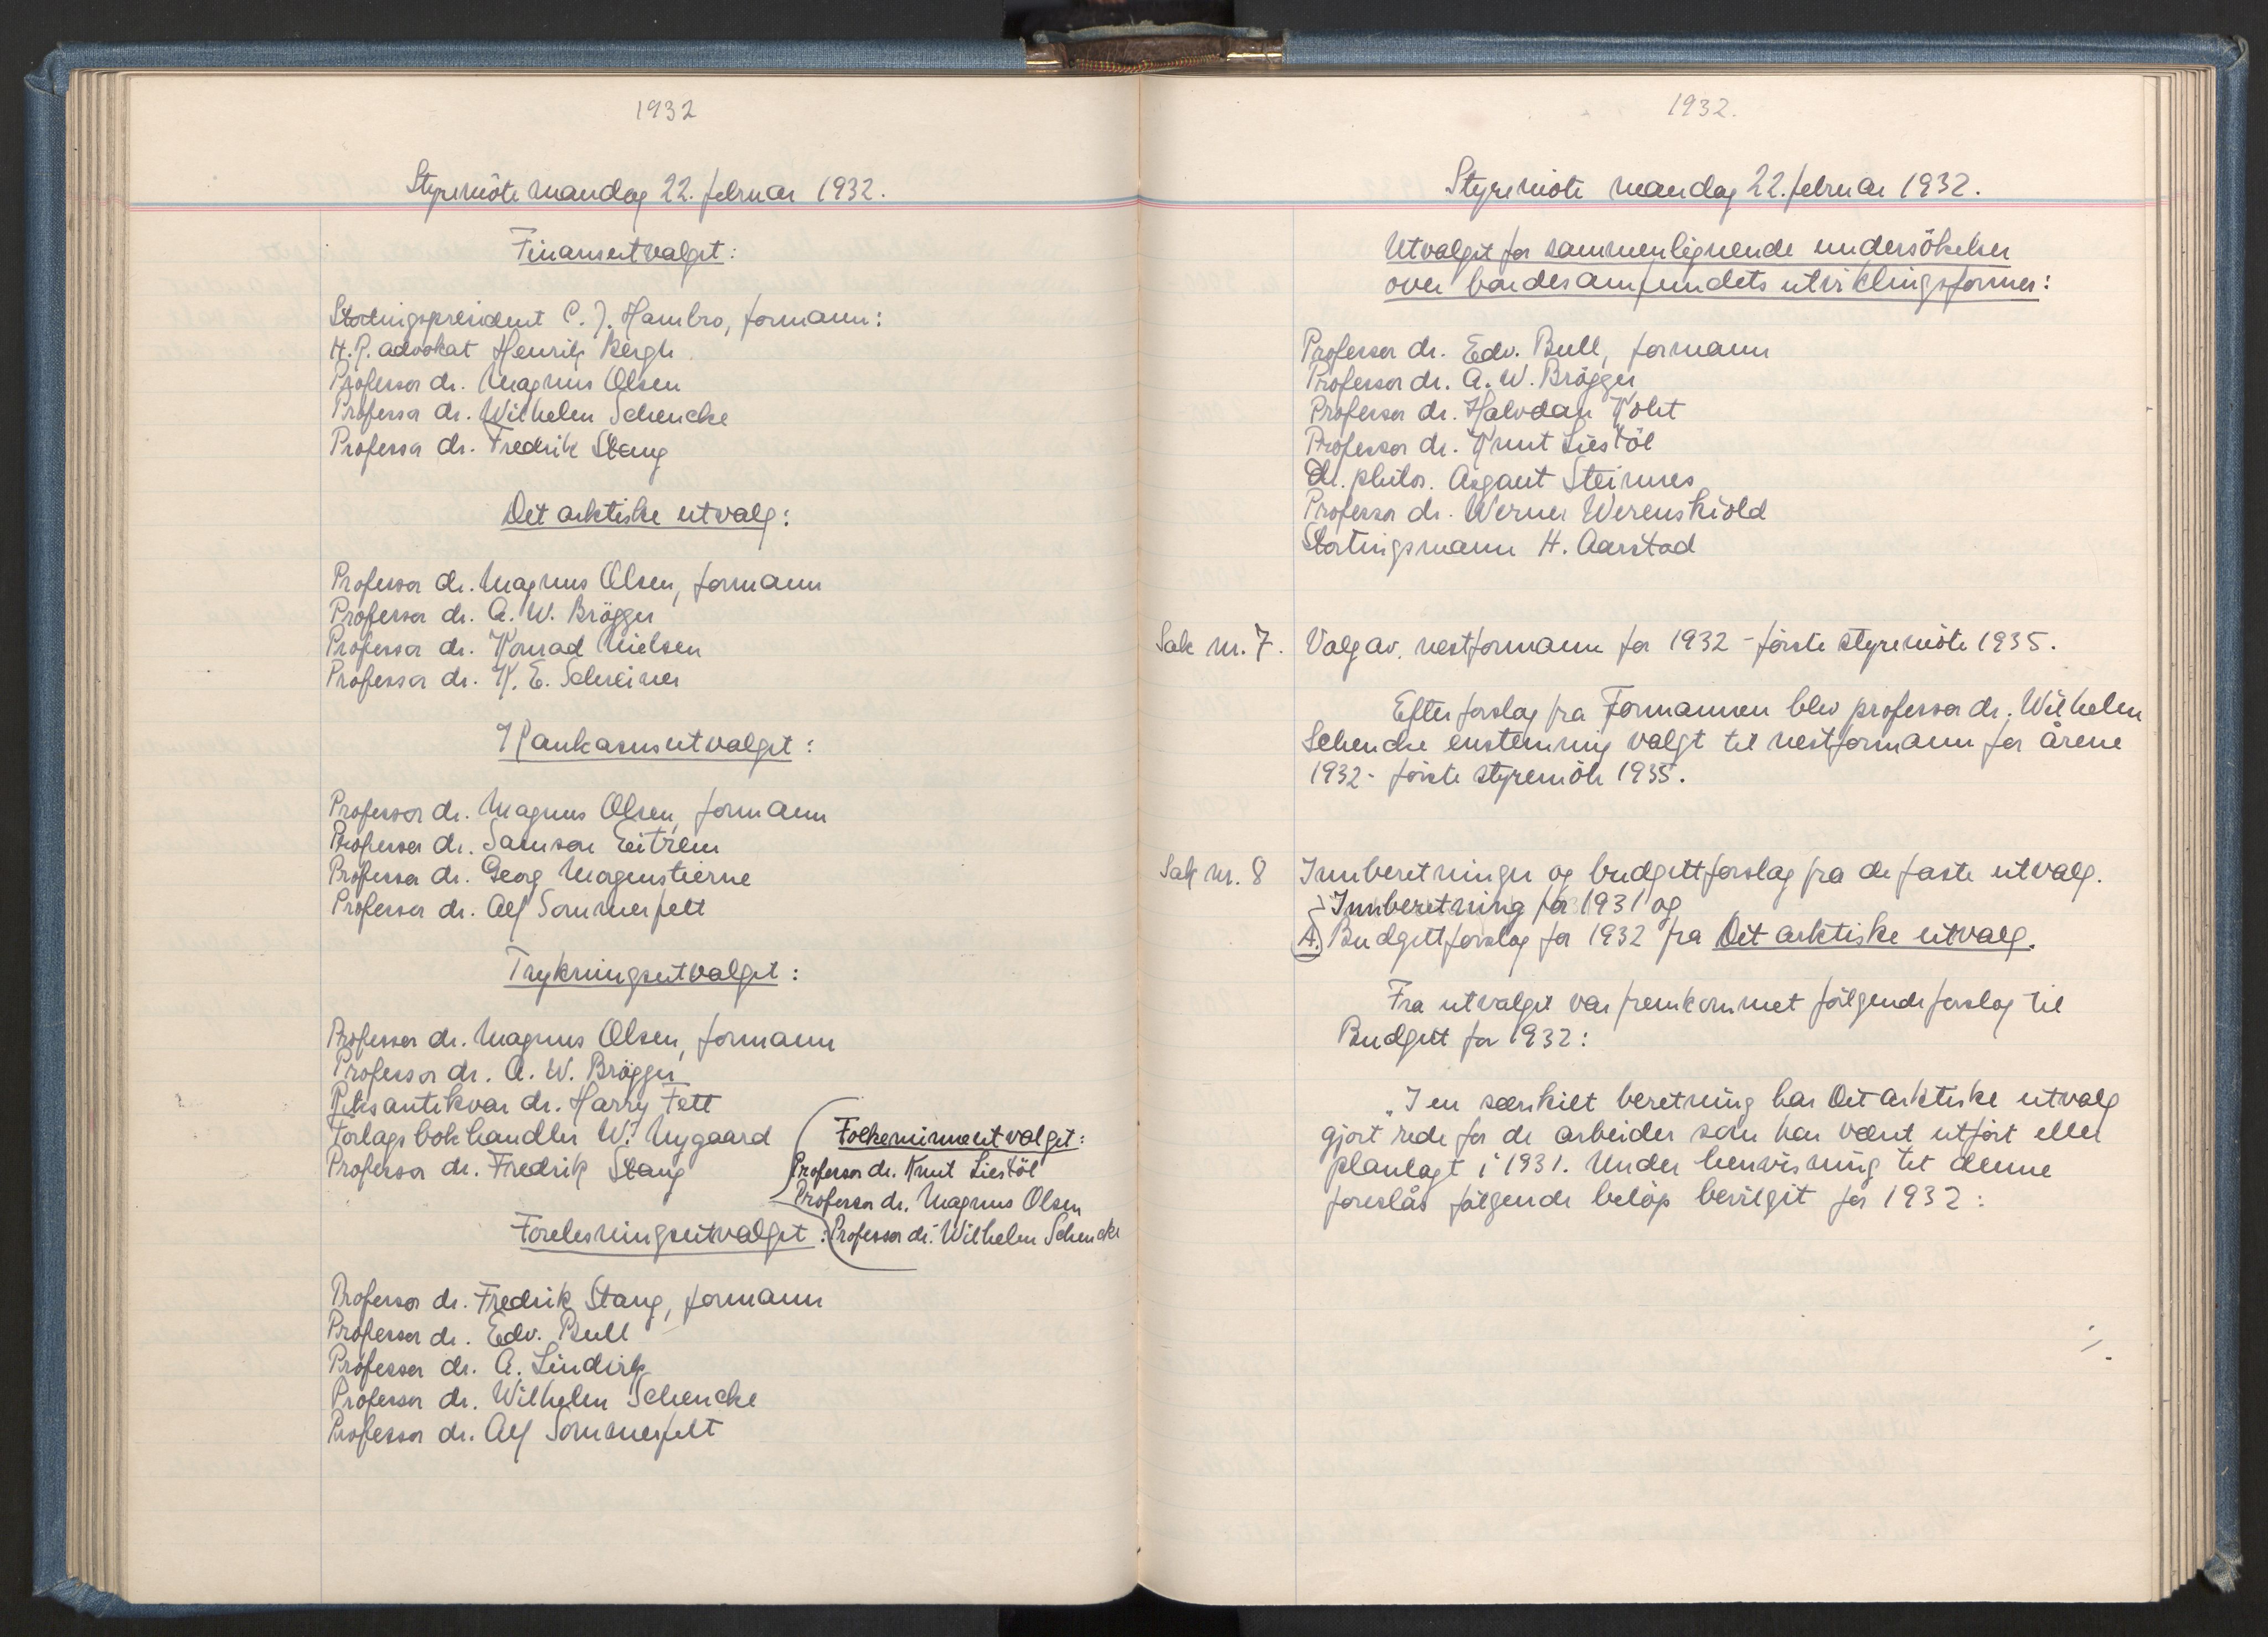 1932
Styremöte mandag 22. februar 1932.
Finansutvalget:
Stortingspresident C. J. Hambro, formann:
H.R. advokat Henrik Bergh.
Professor dr. Magnus Olsen
Professor dr. Wilhelm Schencke
Professor dr. Fredrik Stang
Det arktiske utvalg:
Professor dr. Magnus Olsen, formann
Professor dr. A. W. Brögger
Professor dr. Konrad Nielsen
Professor dr. K. E. Schreiner
Kaukasusutvalget:
Professor dr. Magnus Olsen, formann
Professor dr. Samson Eitrem
Professor dr. Georg Morgenstierne
Professor dr. Alf Sommerfelt
Trykningsutvalget:
Professor dr. Magnus Olsen, formann
Professor dr. A. W. Brögger
Riksantikvar dr. Harry Fett
Forlagsbokhandler W. Nygaard
Professor dr. Fredrik Stang
Folkeminneutvalget:
Professor dr. Knut Liestöl
Professor dr. Magnus Olsen
Professor dr. Wilhelm Schencke
Forelesningsutvalget:
Professor dr. Fredrik Stang, formann
Professor dr. Edv. Bull
Professor dr. A. Lindvik
Professor dr. Wilhelm Schencke
Professor dr. Alf Sommerfelt
1932.
Styremöte mandag 22. februar 1932.
Utvalget for sammenlignende undersökelser
over bondesamfundets utviklingsformer:
Professor dr. Edv. Bull, formann
Professor dr. A. W. Brögger
Professor dr. Halvdan Koht
Professor dr. Knut Liestöl
Dr. philos. Asgaut Steinnes
Professor dr. Werner Werenskiold
Stortingsmann H. Aarstad
Sak nr. 7. Valg av nestformann for 1932 - förste styremöte 1935.
Efter forslag fra Formannen blev professor dr. Wilhelm
Schencke enstemmig valgt til nestformann for årene
1932 - förste styremöte 1935.
Sak nr. 8 Innberetninger og budgettforslag fra de faste utvalg.
Innberetning for 1931 og
A. Budgettforslag for 1932 fra Det arktiske utvalg.
Fra utvalget var fremkommet fölgende forslag til
Budgett for 1932:
„I en særskilt beretning har Det arktiske utvalg
gjort rede for de arbeider som har vært utfört eller
planlagt i 1931. Under henvisning til denne
foreslås fölgende belöp bevilget for 1932: